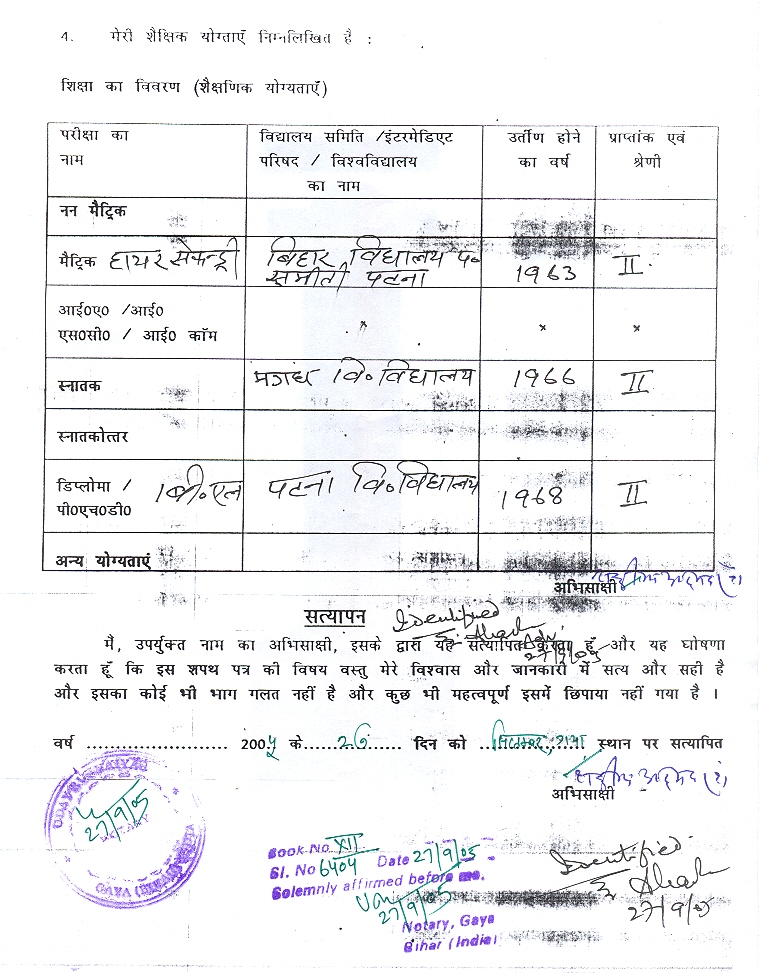 4. मेरी शैक्षिक योग्ताएँ निम्नलिखित है :
शिक्षा का विवरण (शैक्षणिक योग्यताएँ)
परीक्षा का नाम
विद्यालय समिति /इंटरमेडिएट परिषद / विश्वविद्यालय का नाम
उर्तीण होने का वर्ष
प्राप्तांक एवं श्रेणी
नन मैट्रिक
मैट्रिक हायर सेकेन्ड्री
बिहार विद्यालय प०
समीती पटना
1963
II.
आई०ए० /आई०
एस०सी० / आई० कॉम
x
x
x
स्नातक
मगध वि० विद्यालय
1966
II
स्नातकोत्तर
डिप्लोमा /
पी०एच०डी०
बी० एल
पटना वि० विद्यालय
1968
II
अन्य योग्यताएं
अभिसाक्षी
सत्यापन
Identified
27/9/05
मै, उपर्युक्त नाम का अभिसाक्षी, इसके द्वारा यह सत्यापित करता हूँ और यह घोषणा
करता हूँ कि इस शपथ पत्र की विषय वस्तु मेरे विश्वास और जानकारी में सत्य और सही है
और इसका कोई भी भाग गलत नहीं है और कुछ भी महत्वपूर्ण इसमें छिपाया नहीं गया है ।
वर्ष ....................... 2005 के......26...... दिन को ..सितम्बर, गया स्थान पर सत्यापित
अभिसाक्षी
27/9/05
NOTARY
GAYA
Book No. XII
Sl. No 6404 Date 27/9/05
Solemnly affirmed before me.
27/9/05
Notary, Gaya
Bihar (India)
Identified
27/9/05